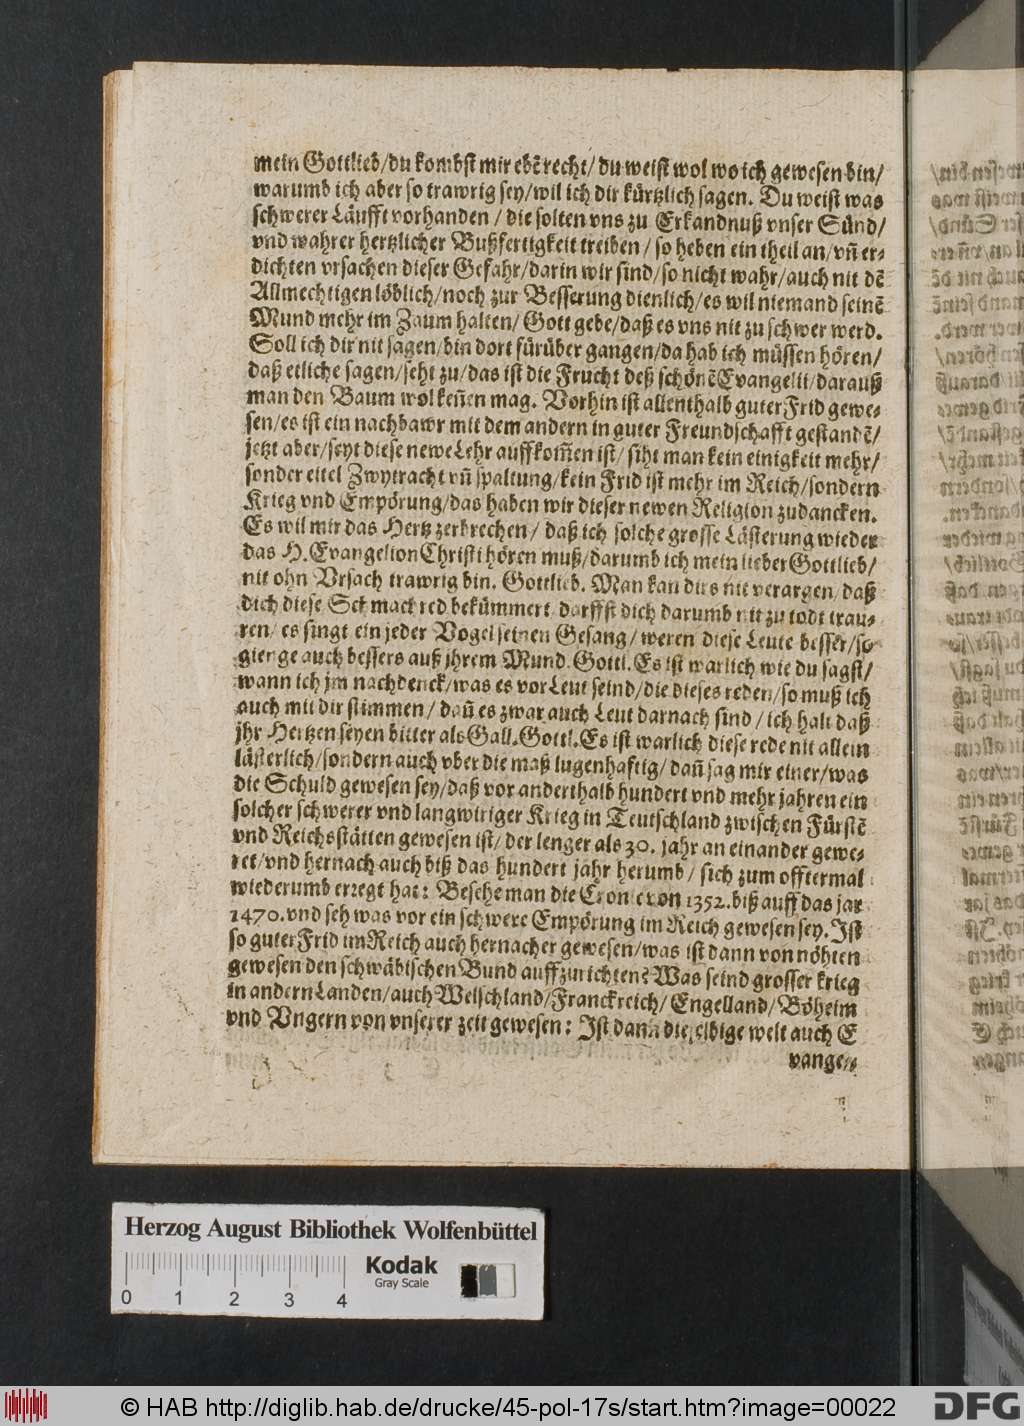 mein Gottlieb/du kombst mir ebē recht/ du weist wol wo ich gewesen bin/
warumb ich aber so trawrig sey/wil ich dir kürtzlich sagen. Du weist was
schwerer Läufft vorhanden / die solten vns zu Erkandnuß vnser Sünd/
vnd wahrer hertzlicher Bußfertigkeit treiben / so heben ein theil an/vñ er-
dichten vrsachen dieser Gefahr/darin wir sind/so nicht wahr/auch nit dē
Allmechtigen löblich/noch zur Besserung dienlich/es wil niemand seinē
Mund mehr im Zaum halten/ Gott gebe/daß es vns nit zu schwer werd.
Soll ich dir nit sagen/bin dort fürüber gangen/da hab ich müssen hören/
daß etliche sagen/seht zu/das ist die Frucht deß schönē Evangelii/darauß
man den Baum wol keñen mag. Vorhin ist allenthalb guter Frid gewe-
sen/es ist ein nachbawr mit dem andern in guter Freundschafft gestandē/
jetzt aber/seyt diese newe Lehr auffkom̃en ist/ siht man kein einigkeit mehr/
sonder eitel Zwytracht vñ spaltung/kein Frid ist mehr im Reich/sondern
Krieg vnd Empörung/das haben wir dieser newen Religion zudancken.
Es wil mir das Hertz zerbrechen/ daß ich solche grosse Lästerung wieder
das H. Evangelion Christi hören muß/darumb ich mein lieber Gottlieb/
nit ohn Vrsach trawrig bin. Gottlieb. Man kan dirs nit verargen/daß
dich diese Schmachred bekümmert/darffst dich darumb nit zu todt trau-
ren/ es singt ein jeder Vogel seinen Gesang/ weren diese Leute besser/so
gienge auch bessers auß jhrem Mund. Gottl. Es ist warlich wie du sagst/
wann ich jm nachdenck/was es vor Leut seind/die dieses reden/so muß ich
auch mit dir stimmen/ dañ es zwar auch Leut darnach sind / ich halt daß
jhr Hertzen seyen bitter als Gall. Gottl. Es ist warlich diese rede nit allein
lästerlich/sondern auch vber die maß lugenhafftig/ dañ sag mir einer/was
die Schuld gewesen sey/daß vor anderthalb hundert vnd mehr jahren ein
solcher schwerer vnd langwiriger Krieg in Teutschland zwischen Fürstē
vnd Reichsstätten gewesen ist/ der lenger als 30. jahr an einander gewe-
ret/vnd hernach auch biß das hundert jahr herumb / sich zum offtermal
wiederumb erregt hat: Besehe man die Cronic von 1352. biß auff das jar
1470. vnd seh was vor ein schwere Empörung im Reich gewesen sey. Ist
so guter Frid im Reich auch hernacher gewesen/was ist dann von nöhten
gewesen den schwäbischen Bund auffzurichten? Was seind grosser krieg
in andern Landen/auch Welschland/Franckreich/ Engelland/ Böheim
vnd Vngern von vnserer zeit gewesen: Ist dann dieselbige welt auch E
vange-
Herzog August Bibliothek Wolfenbüttel
Kodak
Gray Scale
0 1 2 3 4
© HAB http://diglib.hab.de/drucke/45-pol-17s/start.htm?image=00022
DFG